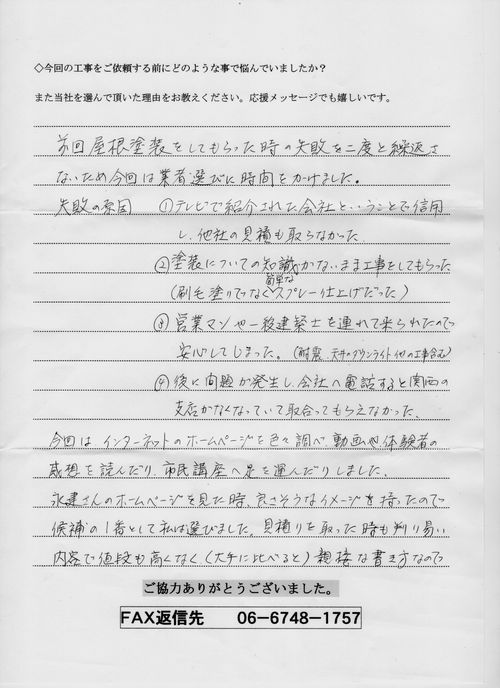 ◇今回の工事をご依頼する前にどのような事で悩んでいましたか？
また当社を選んで頂いた理由をお教えください。応援メッセージでも嬉しいです。
前回屋根塗装をしてもらった時の失敗を二度と繰返さ
ないため今回は業者選びに時間をかけました。
失敗の原因 ①テレビで紹介された会社ということで信用
し、他社の見積も取らなかった
②塗装についての知識がないまま工事をしてもらった
(刷毛塗りでなく簡単なスプレー仕上げだった)
③営業マンや一級建築士を連れて来られたので
安心してしまった。(耐震、天井のダウンライト他の工事含む)
④後に問題が発生し、会社へ電話すると関西の
支店がなくなっていて取合ってもらえなかった、
今回はインターネットのホームページを色々調べ、動画や体験者の
感想を読んだり、市民講座へ足を運んだりしました、
永建さんのホームページを見た時、良さそうなイメージを持ったので
候補の1番として私は選びました。見積りを取った時も判り易い
内容で値段も高くなく(大手に比べると)親接な書き方なので
ご協力ありがとうございました。
FAX返信先 06-6748-1757